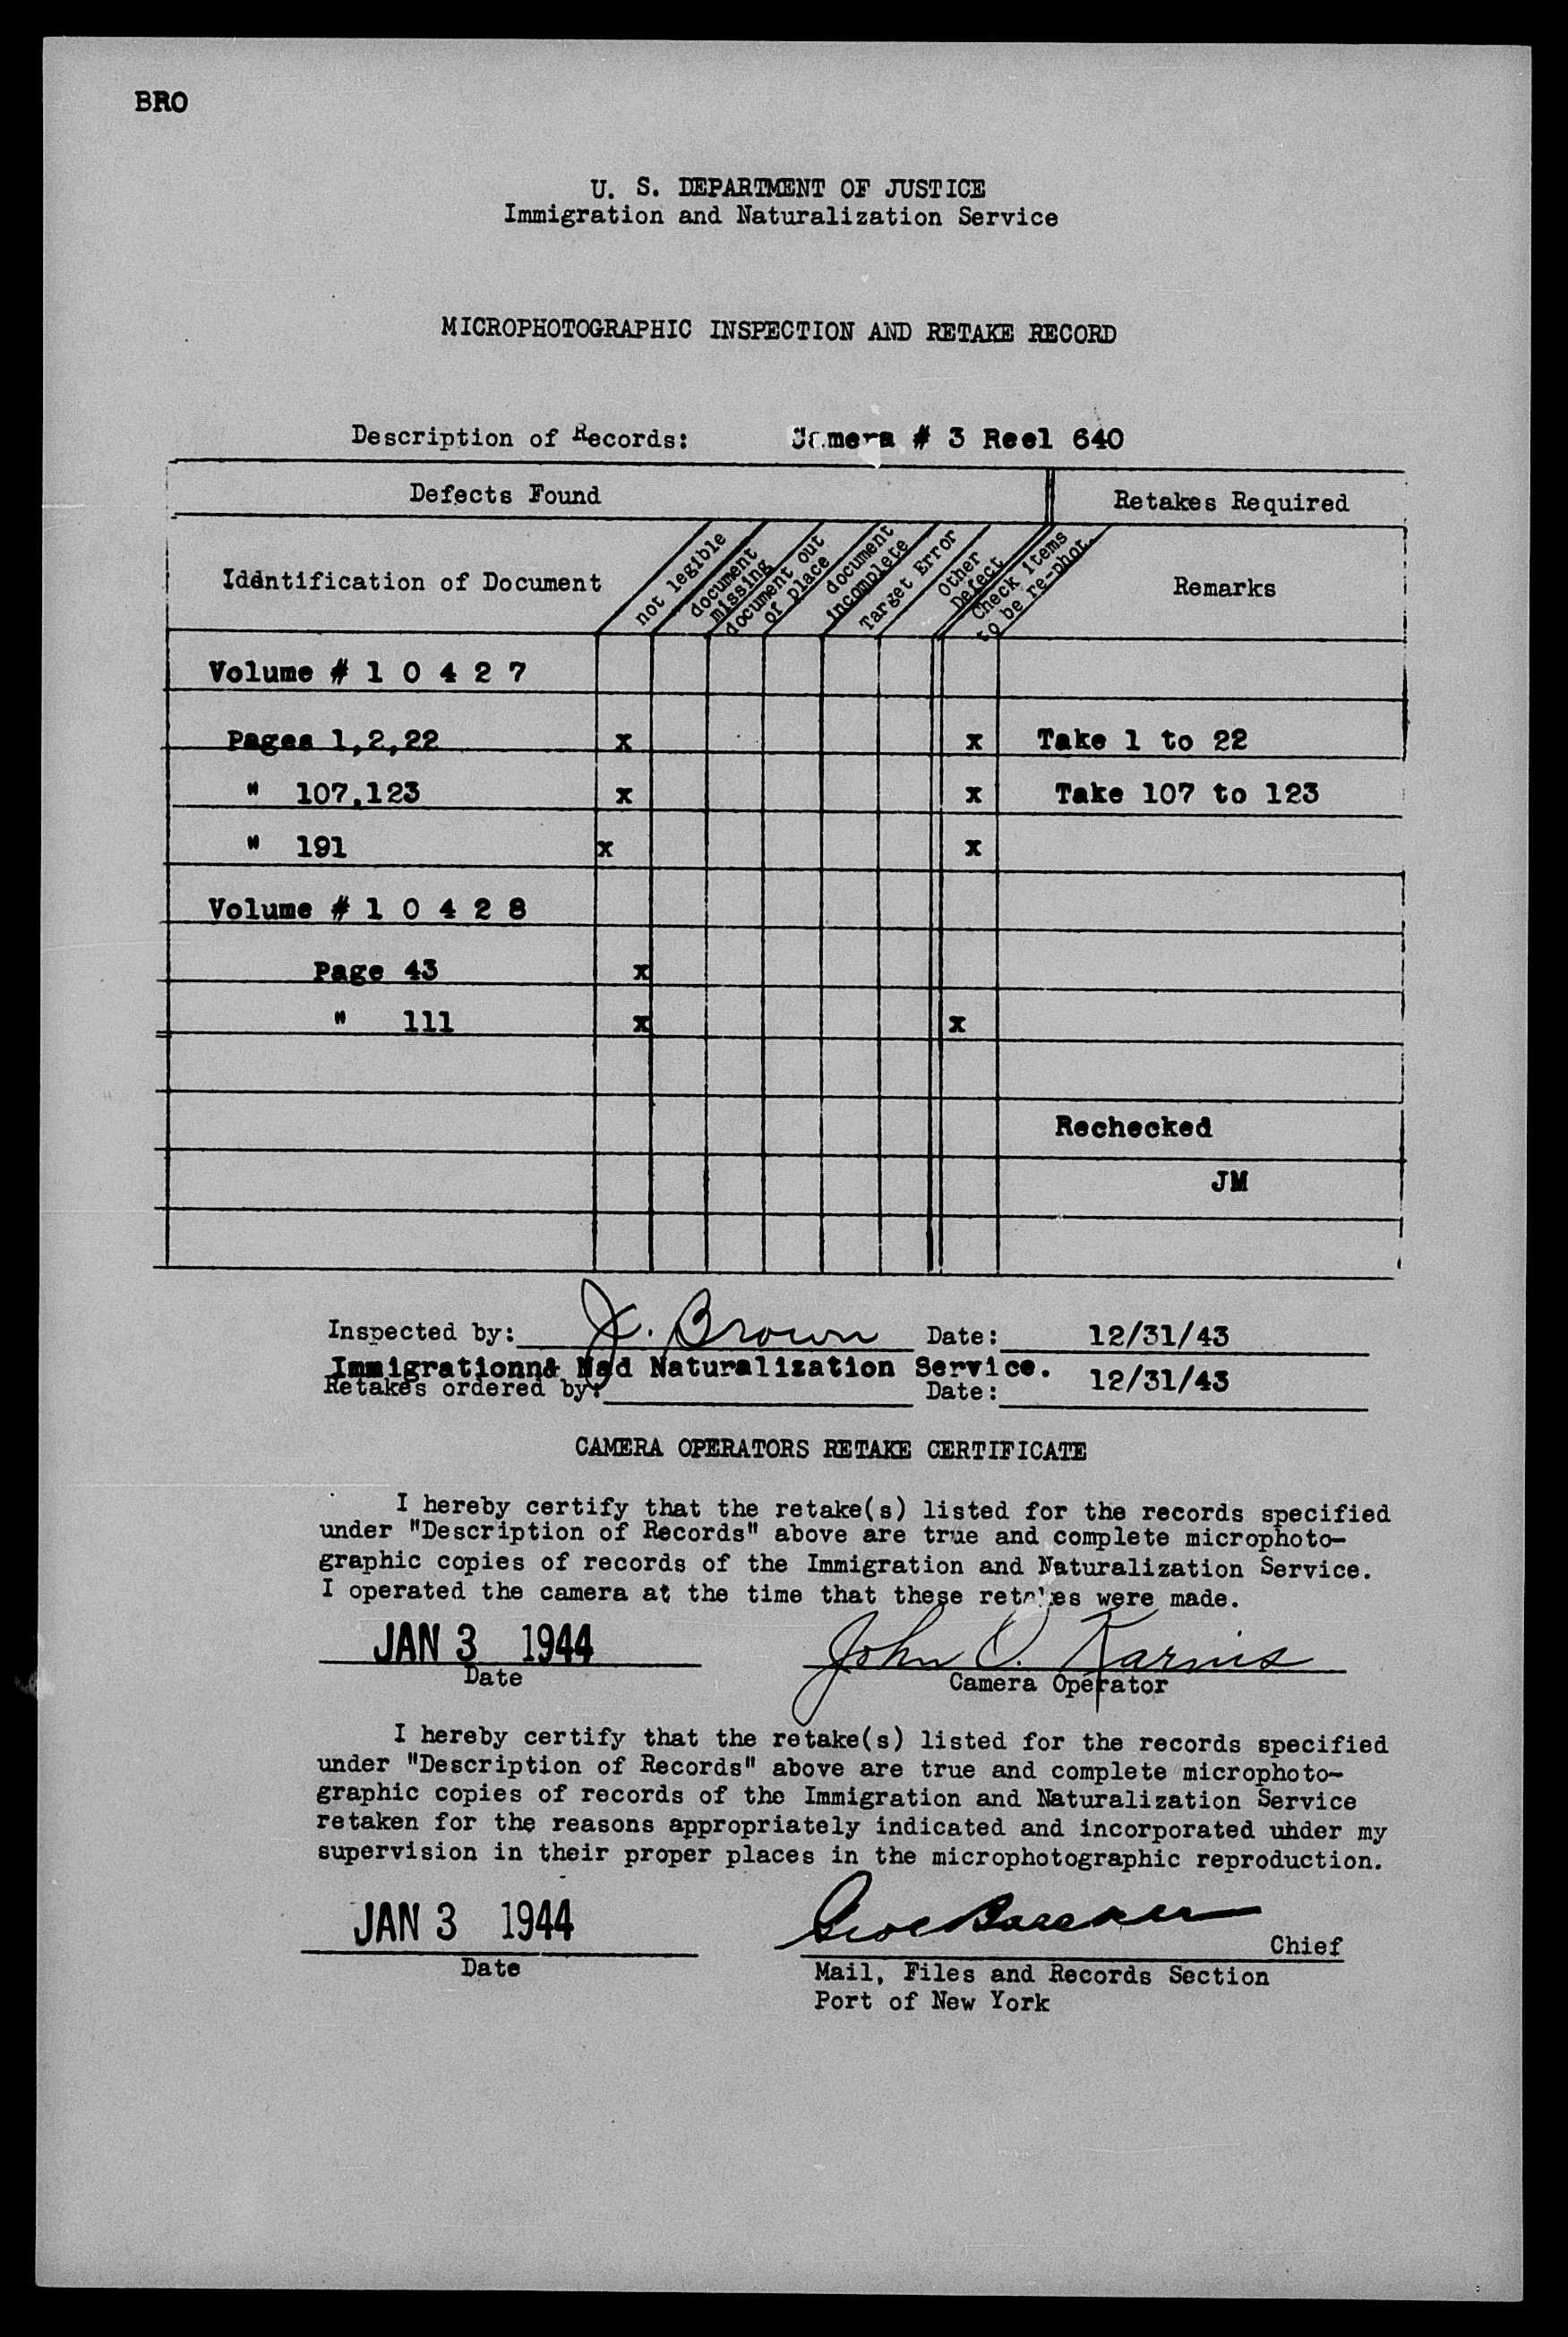 BRO
U. S. DEPARTMENT OF JUSTICE
Immigration and Naturalization Service
MICROPHOTOGRAPHIC INSPECTION AND RETAKE RECORD
Description of Records: Camera # 3 Reel 640
Defects Found Retakes Required
Identification of Document not legible document missing document out of place document incomplete Target Error Other Defect Check items to be re-phot. Remarks
Volume # 1 0 4 2 7
Pages 1,2,22 x x Take 1 to 22
" 107,123 x x Take 107 to 123
" 191 x x
Volume # 1 0 4 2 8
Page 43 x
" 111 x x
Rechecked
JM
Inspected by: J. Brown Date: 12/31/43
Immigrationn& Nad Naturalization Service.
Retakes ordered by: Date: 12/31/43
CAMERA OPERATORS RETAKE CERTIFICATE
I hereby certify that the retake(s) listed for the records specified
under "Description of Records" above are true and complete microphoto-
graphic copies of records of the Immigration and Naturalization Service.
I operated the camera at the time that these retakes were made.
JAN 3 1944 John
Date Camera Operator
I hereby certify that the retake(s) listed for the records specified
under "Description of Records" above are true and complete microphoto-
graphic copies of records of the Immigration and Naturalization Service
retaken for the reasons appropriately indicated and incorporated under my
supervision in their proper places in the microphotographic reproduction.
JAN 3 1944
Chief
Date Mail, Files and Records Section
Port of New York